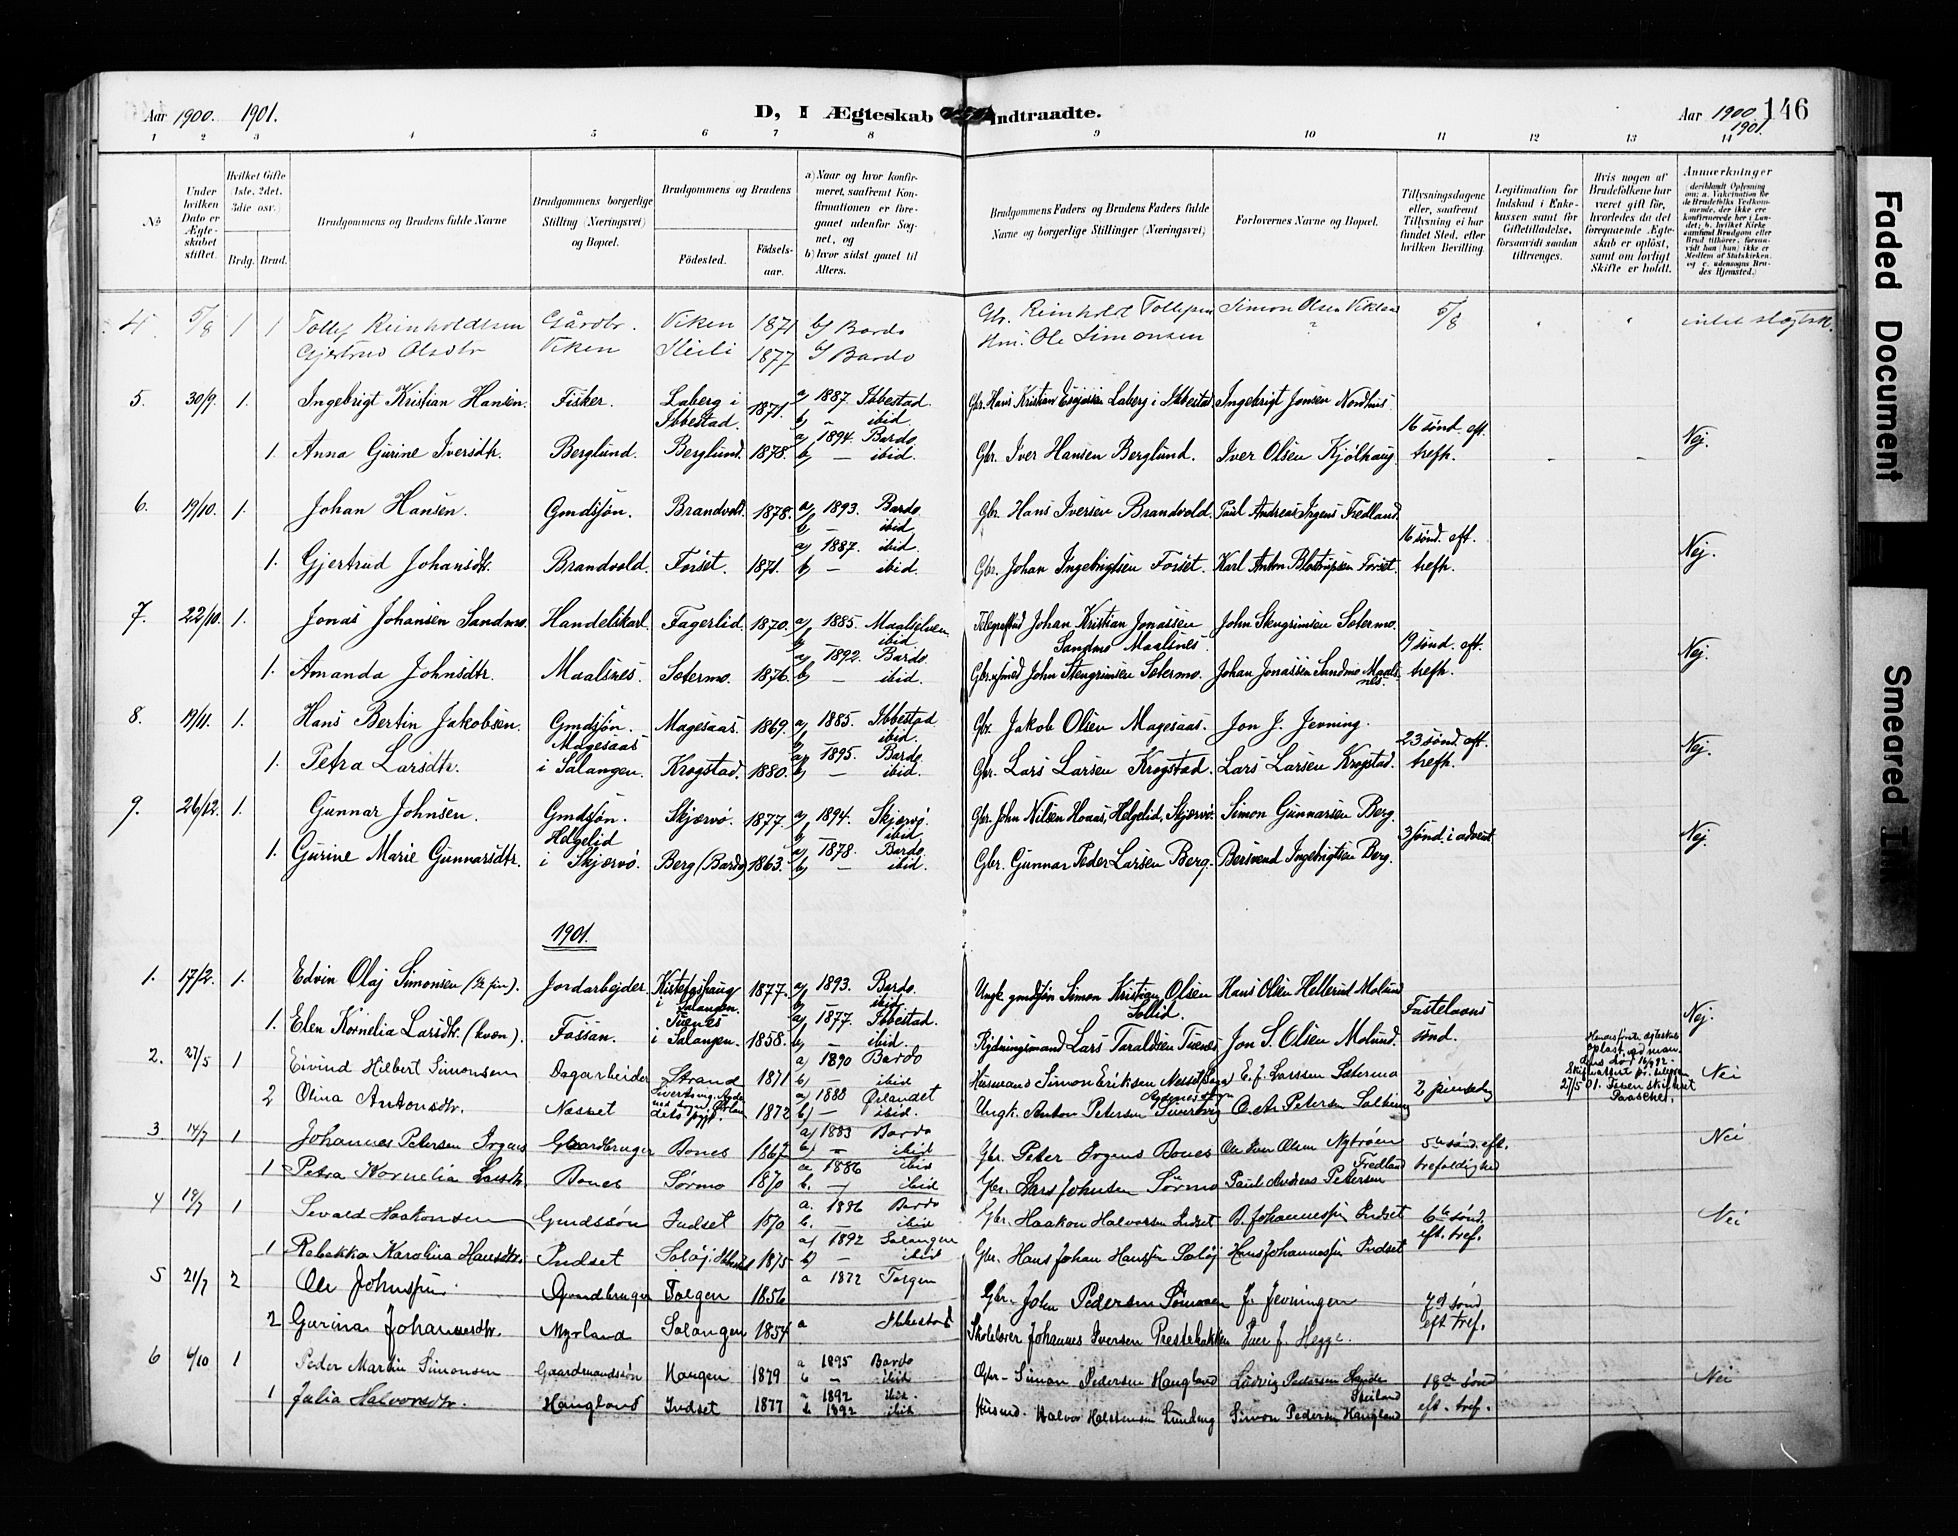 Aar 1900. 1901.
D, I Ægteskab Indtraadte.
Aar 1900 1901. 146
1 2 3 4 5 6 7 8 9 10 11 12 13 14
No
Under hvilken Dato er Ægteskabet stiftet.
Hvilket Gifte 1ste, 2det, 3die osv.
Brdg. Brud.
Brudgommens og Brudens fulde Navne
Brudgommens borgerlige Stilling (Næringsvei) og Bopæl.
Brudgommens og Brudens
Fødested. Fødselsaar.
a) Naar og hvor konfirmeret, saafremt Konfirmationen er foregaaet udenfor Sognet, og
b) hvor sidst gaaet til Alters.
Brudgommens Faders og Brudens Faders fulde Navne og borgerlige Stillinger (Næringsvei)
Forlovernes Navne og Bopæl.
Tillysningsdagene eller, saafremt Tillysning ei har fundet Sted, efter hvilken Bevilling.
Legitimation for Indskud i Enkekassen samt for Giftetilladelse, forsaavidt saadan tiltrænges.
Hvis nogen af Brudefolkene har været gift før, hvorledes da det foregaaende Ægteskab er opløst, samt om lovligt Skifte er holdt.
Anmærkninger
4. 5/8 1 1 Tollef Reinholdtsen Gårdbr. Viken 1871 b) Bardo Gbr. Reinholdt Tollefsen Simon Olsen Viklan 5/8 " "
Gjertrud Olsdtr Viken Steili 1877 b) Bardo Hm: Ole Simonsen
5. 30/9. 1. Ingebrigt Kristian Hansen. Fisker. Laberg i Ibbestad. 1871. a) 1887. Ibbestad. b) - ibid Gbr. Hans Kristian Laberg i Ibbestad Ingebrigt Jonsen Nordhus
1. Anna Gurine Iversdtr. Berglund. Berglund. 1878. a) 1894. Bardo b) - ibid. Gbr. Iver Hansen Berglund. Iver Olsen Kjølhaug 16 sønd. eft. trefh. - - Nej.
6. 19/10. 1. Johan Hansen. Gmdsjøn. Brandvold. 1878. a) 1893. Bardo b) - ibid Gbr. Hans Iversen Brandvold. Paul Andreas Irgens Fredland.
1. Gjertrud Johansdtr. Brandvold. Forset. 1871. a) 1887. ibid. b) - ibid. Gbr. Johan Ingebrigtsen Forset. Karl Anton Forset. 16 sønd. eft. trefh. Nej.
7. 22/10. 1. Jonas Johansen Sandmo. Handelskarl. Fagerlid. 1870. a) 1885. Maalselven b) - ibid Johan Kristian Jonassen Sandmo Maalsnes. John Stengrimsen Sætermo.
1. Amanda Johnsdtr. Maalsnes. Sætermo. 1876. a) 1892. Bardo. b) - ibid. John Stengrimsen Sætermo. Johan Jonassen Sandmo Maalsnes. 19 sønd. eft. trefh. Nej.
8. 19/11. 1. Hans Bertin Jakobsen. Gmdsjøn. Magesaas. 1869. a) 1885. Ibbestad b) - ibid. Gbr. Jakob Olsen Magesaas. Jon J. Jevning.
1. Petra Larsdtr. Magesaas i Salangen. Krogstad. 1880. a) 1895. Bardo b) - ibid. Gbr. Lars Larsen Krogstad. Lars Larsen Krogstad. 23 sønd. eft. trefh. Nej.
9. 26/12. 1. Gunnar Johnsen. Gmdsjøn. Skjærvø. 1877. a) 1894. Skjærvø. b) ibid Gbr. John Nilsen Helgelid, Skjærvø. Simon Gunnarsen Berg.
1. Gurine Marie Gunnarsdtr. Helgelid i Skjærvø. Berg (Bardo) 1863. a) 1878. Bardo b) - ibid. Gbr. Gunnar Peder Larsen Berg. Bersvend Ingebrigtsen Berg. 3 sønd. i advent Nej.
1901.
1. 17/2. 1. Edvin Olaj Simonsen Jordarbejder. i Salangen. 1877. a) 1893. Bardo. b) ibid Ungk. gmdsjøn Simon Kristian Olsen Hans Olsen Hellerud Molund
1. Elen Kornelia Larsdtr. (kvæn). Fossan. i Salangen. 1858. a) 1877. Ibbestad. b) - ibid. Rydningsmand Lars Taraldsen Jon S. Olsen Molund. Fastelavns sønd. Nej.
2. 27/5 1 Eivind Hilbert Simonsen Dagarbeider Strand 1871 a) 1890 Bardo b) - ibid Husmand Simon Eriksen Nesset E. J. Larssen Sætermo
2 Olina Antonsdtr. Nesset 1872 a) 1888 Ørlandet b) - ibid. Ungk. Anton Petersen Petersen 2 pinsedag Nei
3 14/7 1 Johannes Petersen Irgens Gaardbruger Bones 1867 a) 1883 Bardo b) - ibid Gbr. Peter Irgens Bones Ole Iver Olsen Nytrøen 5te sønd. eft. trefoldighed Nei
1 Petra Kornelia Larsdtr. Bones Sørmo 1870 a 1886 ibid b. - ibid Gbr. Lars Johnsen Sørmo Paul Andreas Petersen Fredland
4 19/7 1 Sevald Haakonsen Gmdssøn Indset 1870 a. 1886 Bardo b. - ibid Gbr. Haakon Halvorsen Indset Johannessen Indset 6te sønd. eft. tref. Nei
1 Rebekka Karolina Hansdtr. Indset 1875 a) 1892 Salangen b) - ibid Gbr. Hans Johan Hansen Hans Johannessen Indset
5 21/7 2 Ole Johnsen. Gaardbruger Tolgen 1856 a 1872 Tolgen Gbr. John Pedersen J. Jevningen 7de sønd eft tref.
2 Gurina Johannesdtr. Myrland Salangen 1854 a Ibbestad Skolelærer Johannes Iversen Prestebakken Iver J. Hegge.
6 6/10 1 Peder Martin Simonsen Gaardmandssøn Haugen 1879 a 1895 Bardo b - ibid Gbr. Simon Pedersen Haugland Ludvig Pedersen 18de sønd eft. tref. Nei
1 Julia Halvorsdtr. Haugland Indset 1877 a 1892 ibid. b 1892 ibid Husmd. Halvor Halstensen Lundeng Simon Pedersen Haugland
Faded Document
Smeared Ink